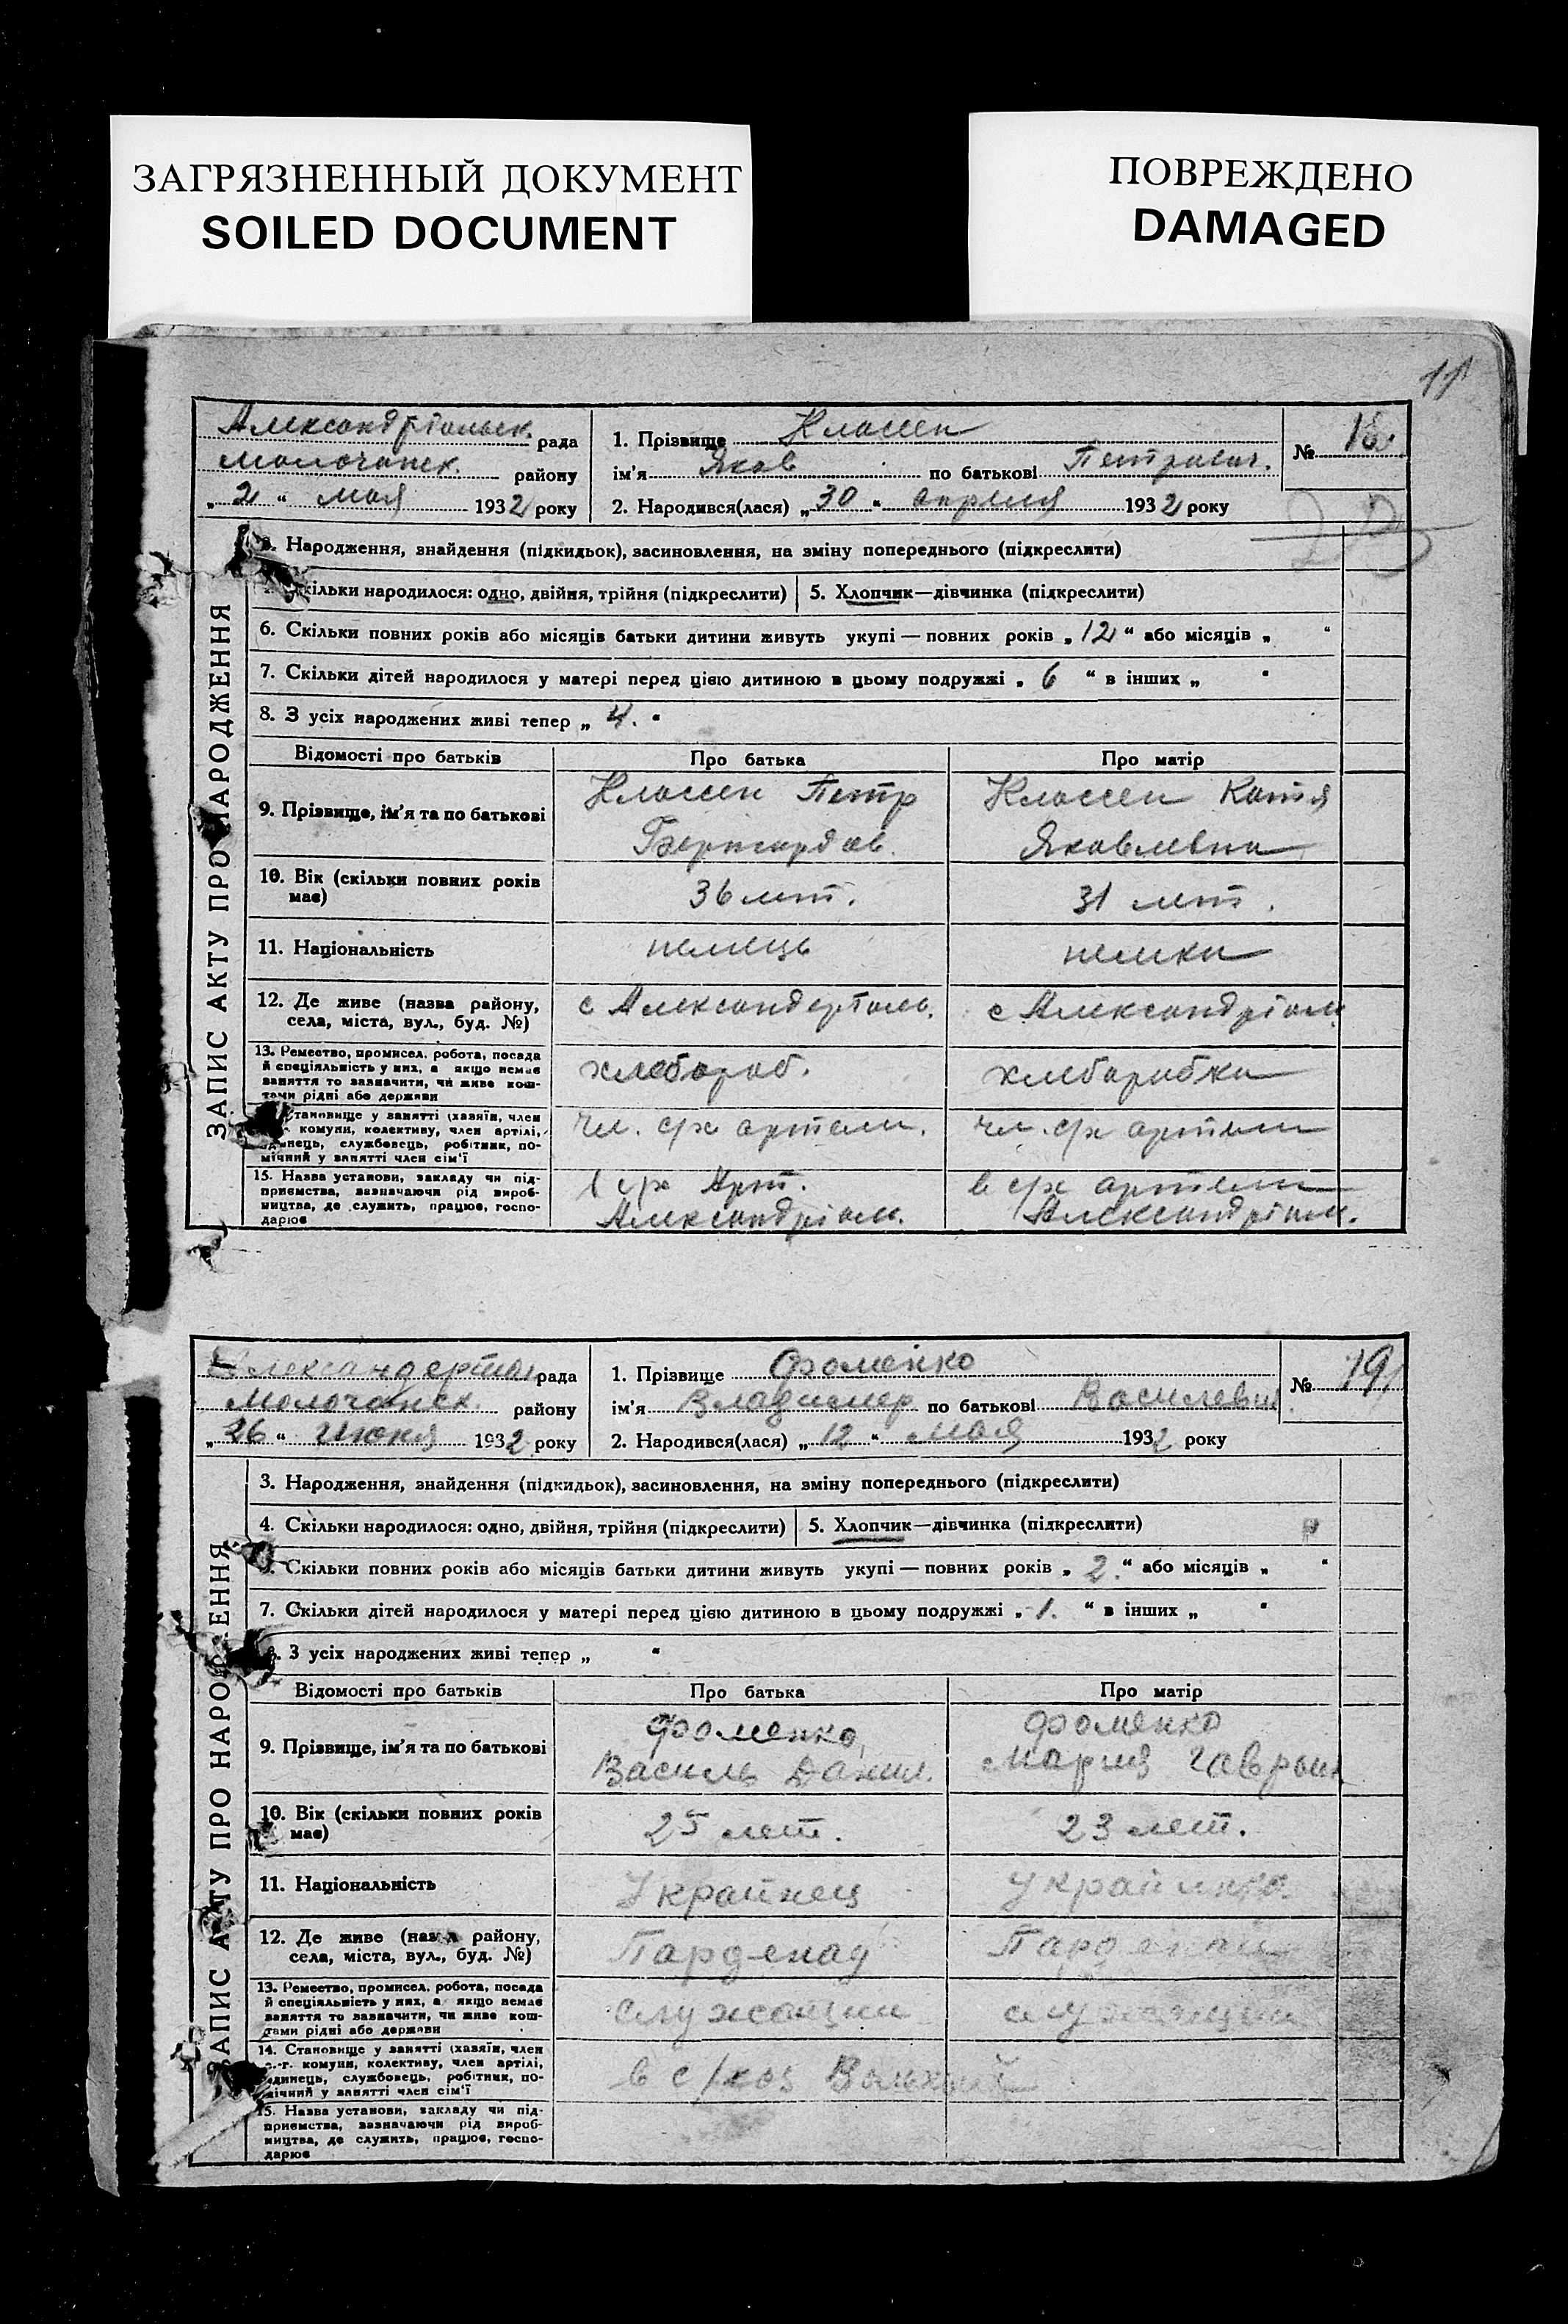 ЗАГРЯЗНЕННЫЙ ДОКУМЕНТ
SOILED DOCUMENT
ПОВРЕЖДЕНО
DAMAGED
11
ЗАПИС АКТУ ПРО НАРОДЖЕННЯ
Александртальск. рада
Молочанск. району
„2“ мая 1932 року
1. Прізвище Классен
ім'я Яков по батькові Петрович.
2. Народився(лася) „30“ апреля 1932 року
№ 18
3. Народження, знайдення (підкидьок), засиновлення, на зміну попереднього (підкреслити)
кільки народилося: одно, двійня, трійня (підкреслити)
5. Хлопчик—дівчинка (підкреслити)
6. Скільки повних років або місяців батьки дитини живуть укупі — повних років „12“ або місяців „ “
7. Скільки дітей народилося у матері перед цією дитиною в цьому подружжі „6“ в інших „ “
8. З усіх народжених живі тепер „4.“
Відомості про батьків Про батька Про матір
9. Прізвище, ім'я та по батькові
Классен Петр
Бернгардов.
Классен Катя
Яковлевна
10. Вік (скільки повних років
має)
36 лет.
31 лет.
11. Національність
немець
немка
12. Де живе (назва району,
села, міста, вул., буд. №)
с Александерталь.
с Александрталь
13. Ремество, промисел, робота, посада
й спеціяльність у них, а якщо немає
заняття то зазначити, чи живе кош-
тами рідні або держави
хлебороб.
хлеборобка
становище у занятті (хазяїн, член
комуни, колективу, член артілі,
одинець, службовець, робітник, по-
мічний у занятті член сім'ї
чл. с/х артели.
чл. с/х артели
15. Назва установи, закладу чи під-
приємства, зазначаючи рід вироб-
ництва, де служить, працює, госпо-
дарює
в с/х Арт.
Александртал.
в с/х артели
Александртал.
ЗАПИС АКТУ ПРО НАРОДЖЕННЯ
Александертал рада
Молочанск. району
„26“ Июня 1932 року
1. Прізвище Фоменко
ім'я Владимер по батькові Василевич
2. Народився(лася) „12“ мая 1932 року
№ 19
3. Народження, знайдення (підкидьок), засиновлення, на зміну попереднього (підкреслити)
4. Скільки народилося: одно, двійня, трійня (підкреслити)
5. Хлопчик—дівчинка (підкреслити)
Скільки повних років або місяців батьки дитини живуть укупі — повних років „2.“ або місяців „ “
7. Скільки дітей народилося у матері перед цією дитиною в цьому подружжі „1.“ в інших „ “
З усіх народжених живі тепер „ “
Відомості про батьків Про батька Про матір
9. Прізвище, ім'я та по батькові
Фоменко
Василь Данил.
Фоменко
Мария Гаврыл
10. Вік (скільки повних років
має)
25 лет.
23 лет.
11. Національність
Украинец
Украинка
12. Де живе (назва району,
села, міста, вул., буд. №)
Парденау
13. Ремество, промисел, робота, посада
й спеціяльність у них, а якщо немає
заняття то зазначити, чи живе кош-
тами рідні або держави
служащий
служащий
14. Становище у занятті (хазяїн, член
комуни, колективу, член артілі,
одинець, службовець, робітник, по-
мічний у занятті член сім'ї
15. Назва установи, закладу чи під-
приємства, зазначаючи рід вироб-
ництва, де служить, працює, госпо-
дарює